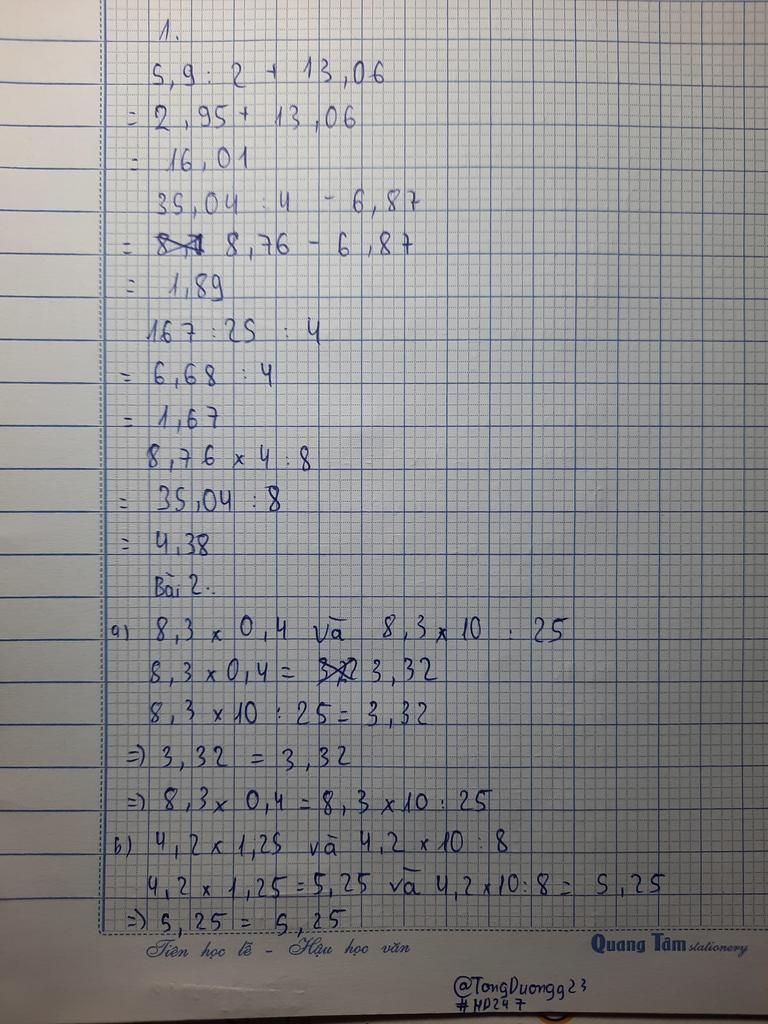 1.
5,9 : 2 + 13,06
= 2,95 + 13,06
= 16,01
35,04 : 4 - 6,87
= 8,76 - 6,87
= 1,89
167 : 25 : 4
= 6,68 : 4
= 1,67
8,76 x 4 : 8
= 35,04 : 8
= 4,38
Bài 2.
a) 8,3 x 0,4 và 8,3 x 10 : 25
8,3 x 0,4 = 3,32
8,3 x 10 : 25 = 3,32
=) 3,32 = 3,32
=) 8,3 x 0,4 = 8,3 x 10 : 25
b) 4,2 x 1,25 và 4,2 x 10 : 8
4,2 x 1,25 = 5,25 và 4,2 x 10 : 8 = 5,25
=) 5,25 = 5,25
Tiên học lễ - Hậu học văn Quang Tâm stationery
@TongDuongg23
#HD247